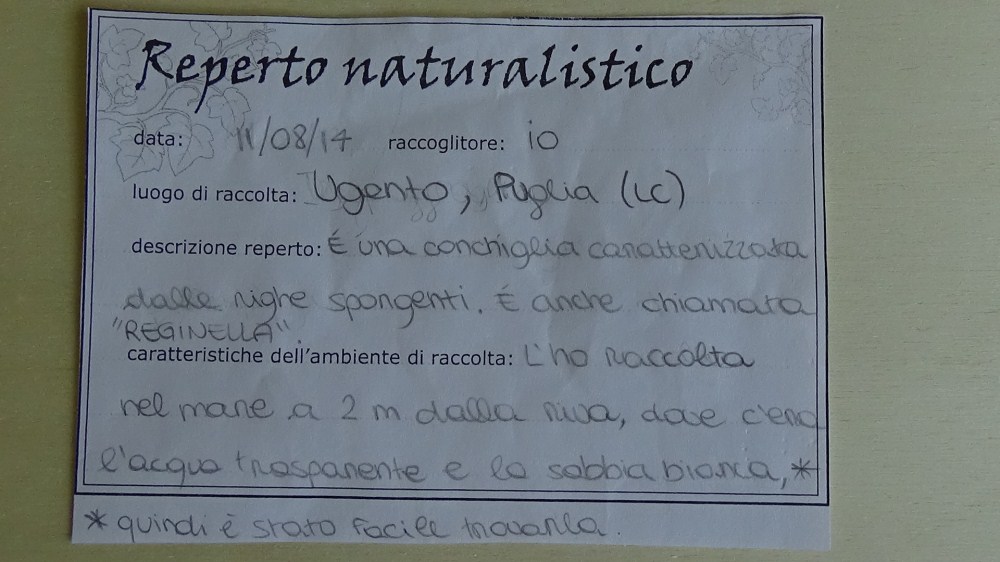 Reperto naturalistico
data: 11/08/14 raccoglitore: io
luogo di raccolta: Ugento, Puglia (LC)
descrizione reperto: É una conchiglia caratterizzata
dalle righe sporgenti. É anche chiamata
"REGINELLA".
caratteristiche dell'ambiente di raccolta: L'ho raccolta
nel mare a 2 m dalla riva, dove c'era
l'acqua trasparente e la sabbia bianca,*
* quindi è stato facile trovarla.